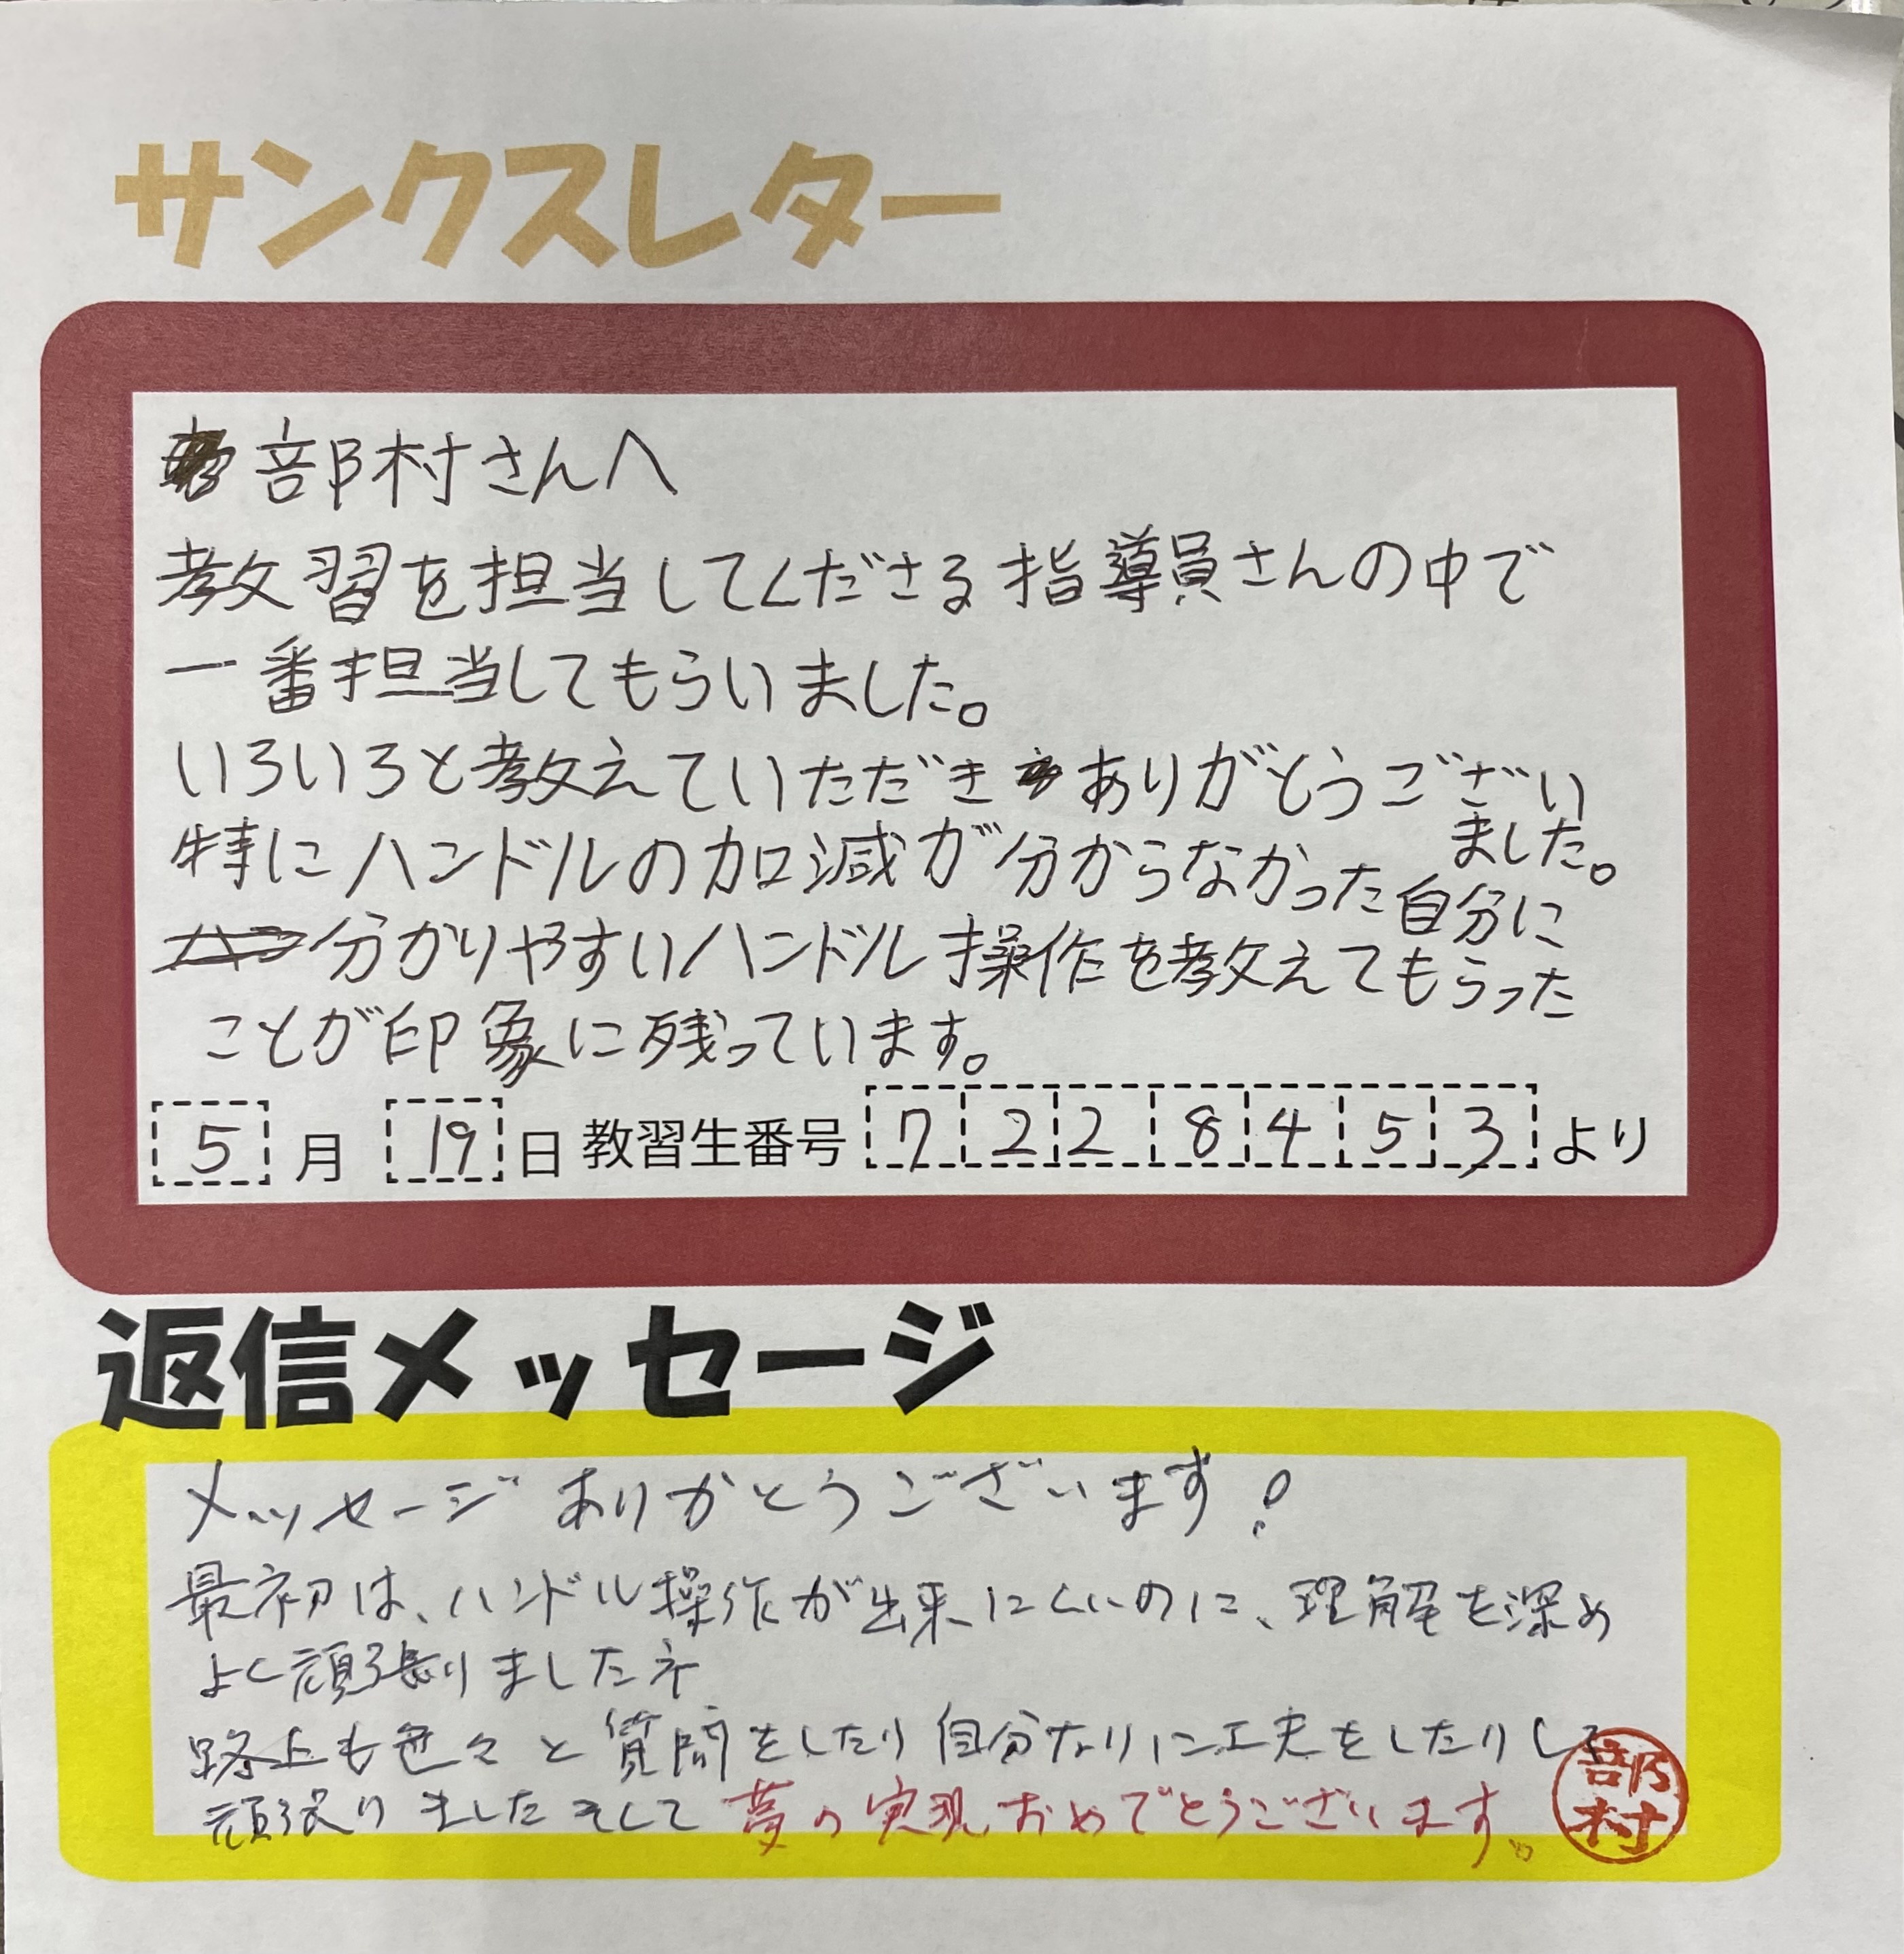 サンクスレター
部村さんへ
教習を担当してくださる指導員さんの中で
一番担当してもらいました。
いろいろと教えていただき ありがとうござい
ました。
特にハンドルの加減が分からなかった自分に
分かりやすいハンドル操作を教えてもらった
ことが印象に残っています。
5月 19日 教習生番号 7228453 より
返信メッセージ
メッセージありがとうございます！
最初は、ハンドル操作が出来にくいのに、理解を深め
よく頑張りましたネ
路上も色々と質問をしたり自分なりに工夫をしたりして
頑張りましたそして夢の実現おめでとうございます。
部村